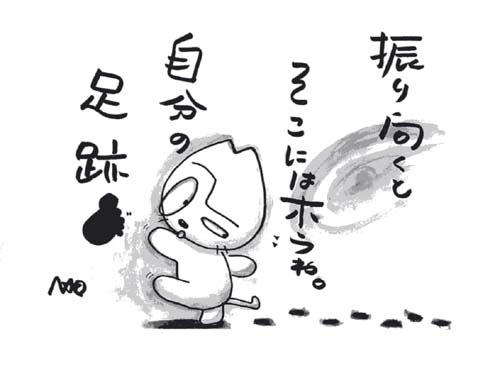 振り向くと
そこにはホラね。
自分の
足跡